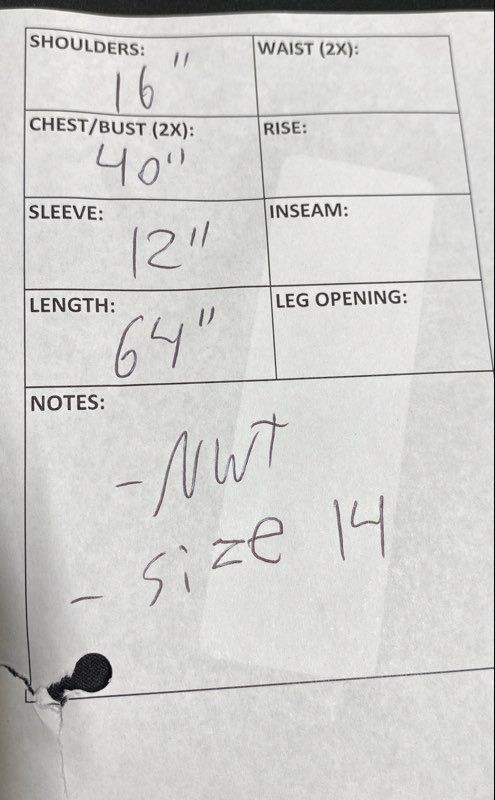 SHOULDERS: WAIST (2X):
16"
CHEST/BUST (2X): RISE:
40"
SLEEVE: INSEAM:
12"
LENGTH: LEG OPENING:
64"
NOTES:
- NWT
- size 14